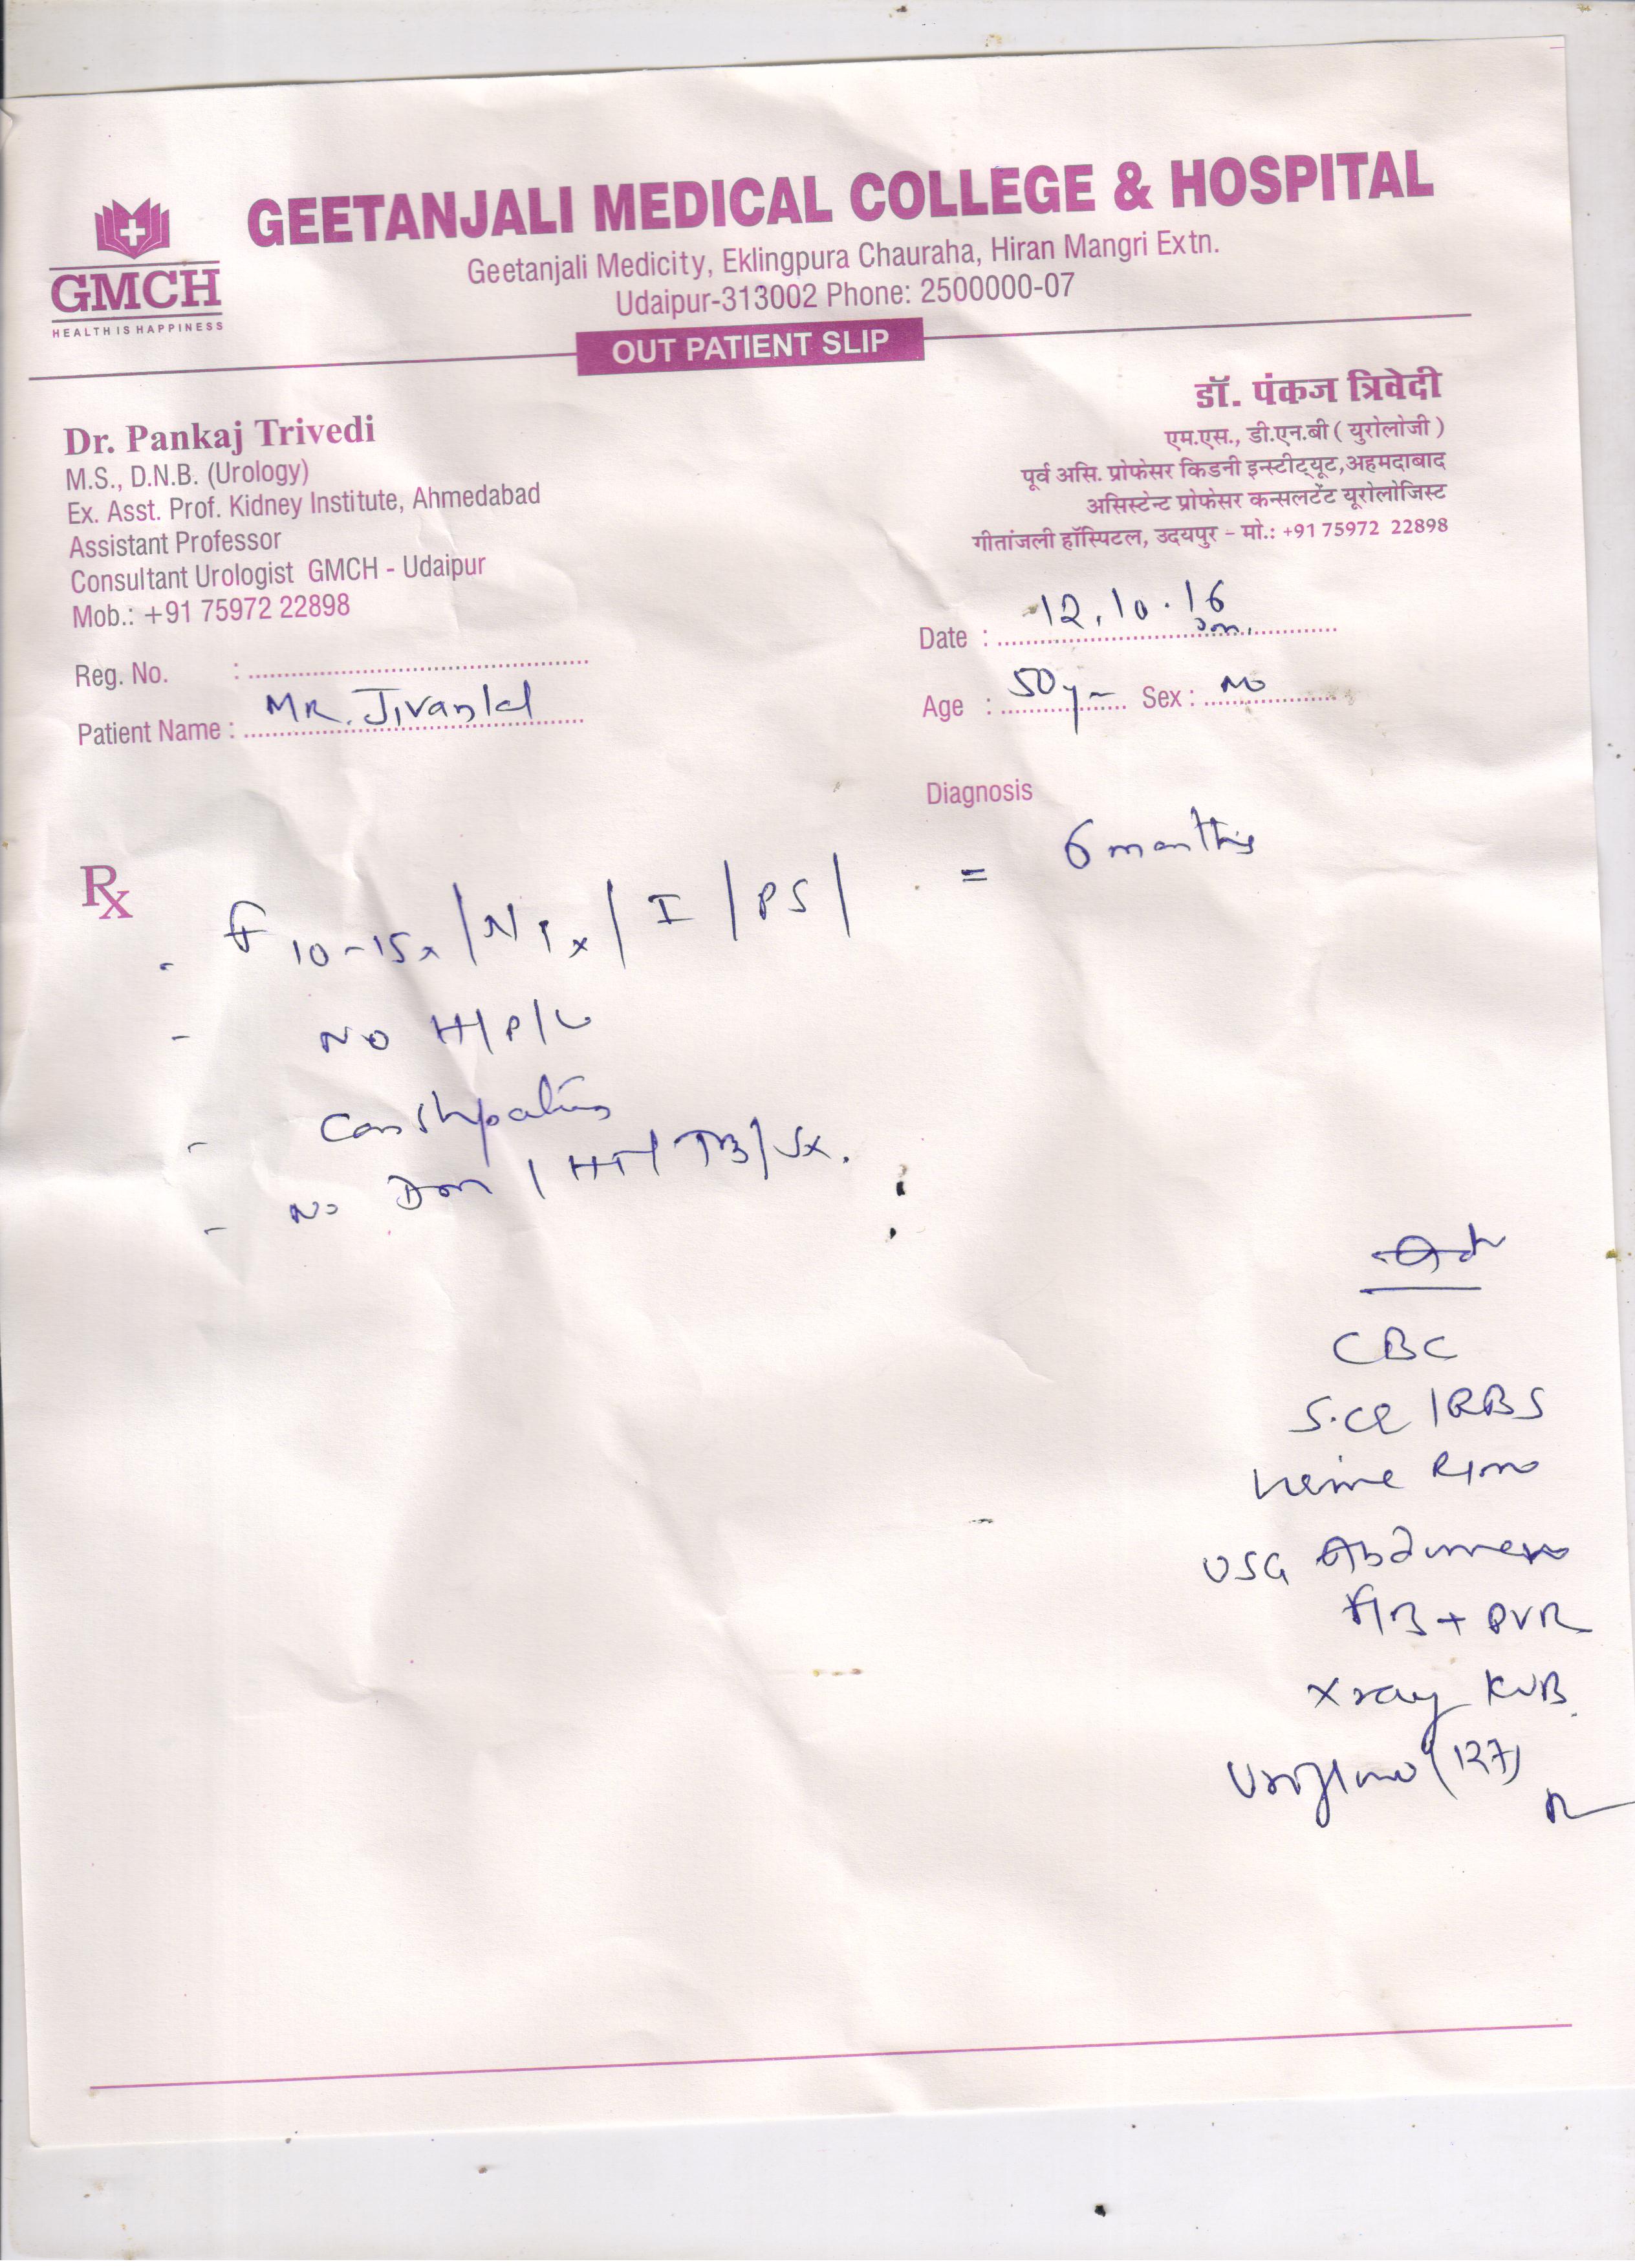 GEETANJALI MEDICAL COLLEGE & HOSPITAL
Geetanjali Medicity, Eklingpura Chauraha, Hiran Mangri Extn.
Udaipur-313002 Phone: 2500000-07
GMCH
HEALTH IS HAPPINESS
OUT PATIENT SLIP
Dr. Pankaj Trivedi
M.S., D.N.B. (Urology)
Ex. Asst. Prof. Kidney Institute, Ahmedabad
Assistant Professor
Consultant Urologist GMCH - Udaipur
Mob.: +91 75972 22898
डॉ. पंकज त्रिवेदी
एम.एस., डी.एन.बी ( युरोलोजी )
पूर्व असि. प्रोफेसर किडनी इन्स्टीट्यूट,अहमदाबाद
असिस्टेन्ट प्रोफेसर कन्सलटेंट यूरोलोजिस्ट
गीतांजली हॉस्पिटल, उदयपुर - मो.: +91 75972 22898
Date : 12.10.16
Reg. No. :
Age : 50y Sex :
Patient Name : MR. Jivanlal
Diagnosis
Rx
- F 10-15x / N 1x / I / PS / = 6 months
- NO H/P/L
- Constipation
- No Dm / HT / TB / Sx.
CBC
S.CR / RBS
Urine R/m
USG Abdomen
F/B + PVR
Xray KUB
(127)